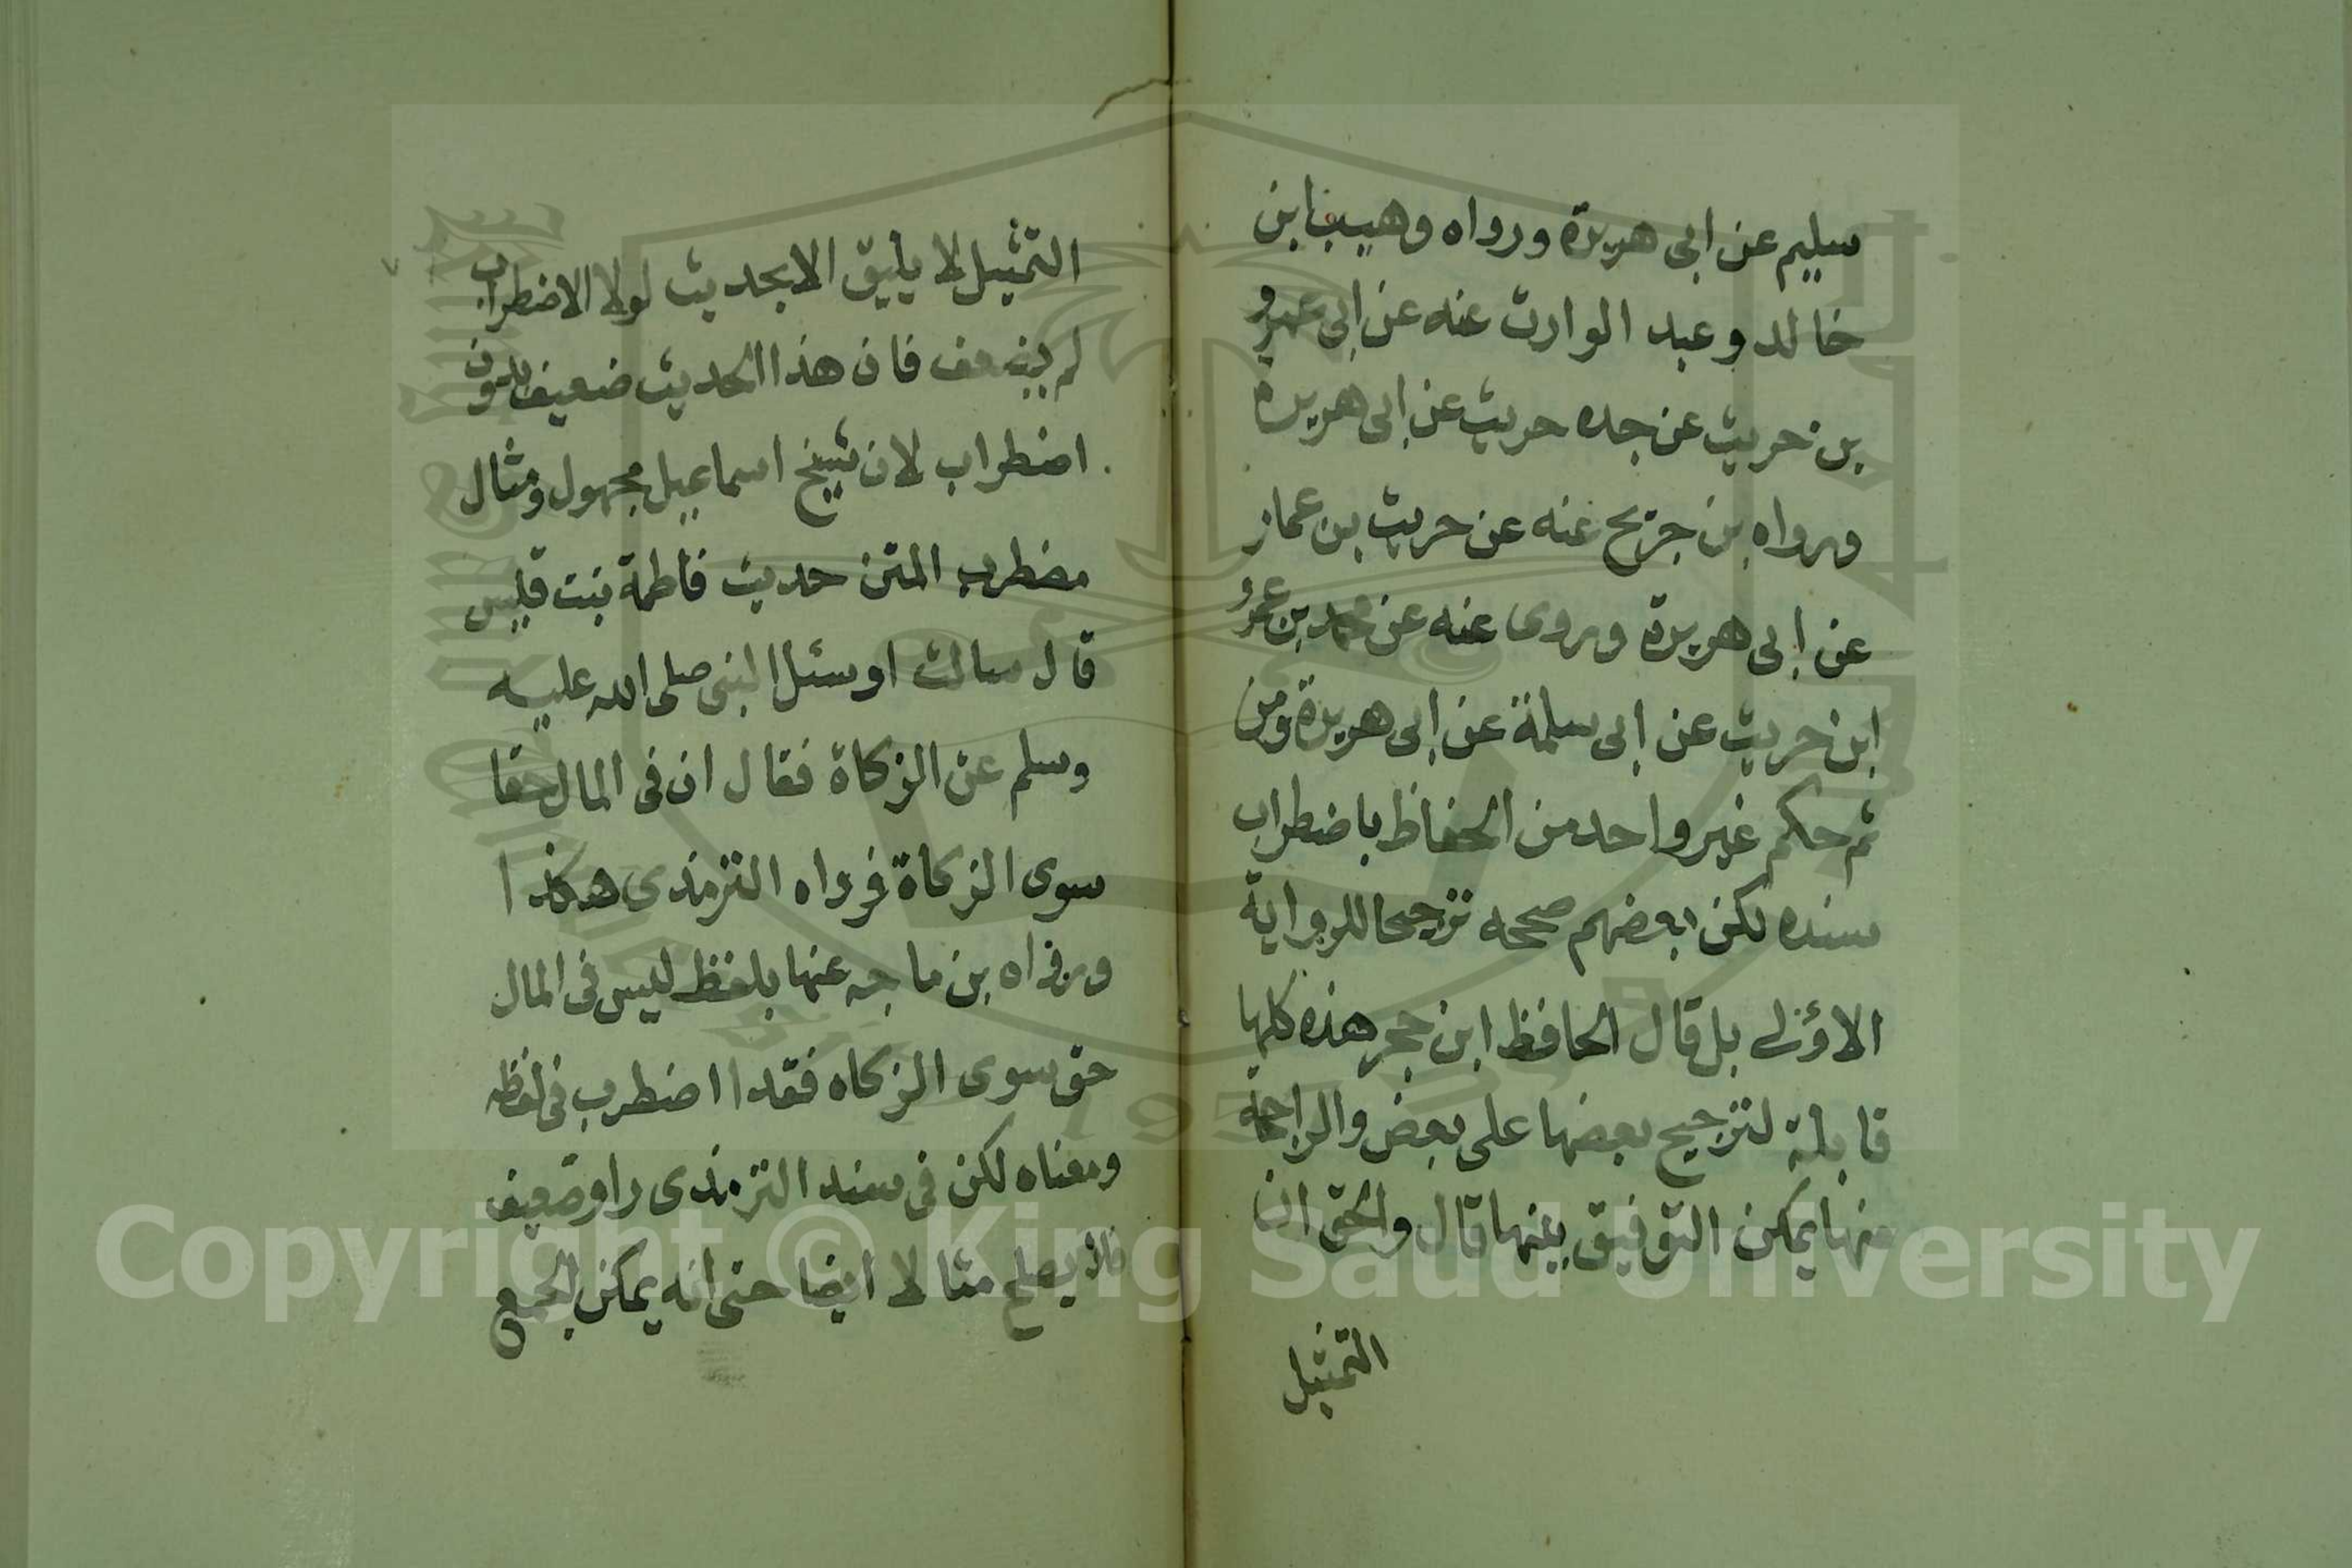 سليم عن ابى هريرة ورواه وهيب ابن
خالد وعبد الوارث عنه عن ابى عمرو
بن حريث عن جده حريث عن ابى هريرة
ورواه بن جريح عنه عن حريث بن عمار
عن ابى هريرة وروى عنه عن محمد بن عمرو
ابن حريث عن ابى سلمة عن ابى هريرة ومن
ثم حكم غير واحد من الحفاظ باضطراب
سنده لكن بعضهم صححه ترجيحا للرواية
الاولى بل قال الحافظ ابن حجر هذه كلها
قابلة لترجيح بعضها على بعض والراجحة
منها يمكن التوفيق بينها قال والحق ان
التمثيل
التمثيل لا يليق الا بحديث لولا الاضطراب
لم يضعف فان هذا الحديث ضعيف بدون
اضطراب لان شيخ اسماعيل مجهول ومثال
مضطرب المتن حديث فاطمة بنت قيس
قال سالت او سئل النبى صلى الله عليه
وسلم عن الزكاة فقال ان فى المال حقا
سوى الزكاة فرواه الترمذى هكذا
ورواه بن ماجه عنها بلفظ ليس فى المال
حق سوى الزكاه فقد ا اضطرب فى لفظه
ومعناه لكن فى سند الترمذى راو ضعيف
فلا يصلح مثالا ايضا حتى انه يمكن الجمع
Copyright © King Saud University